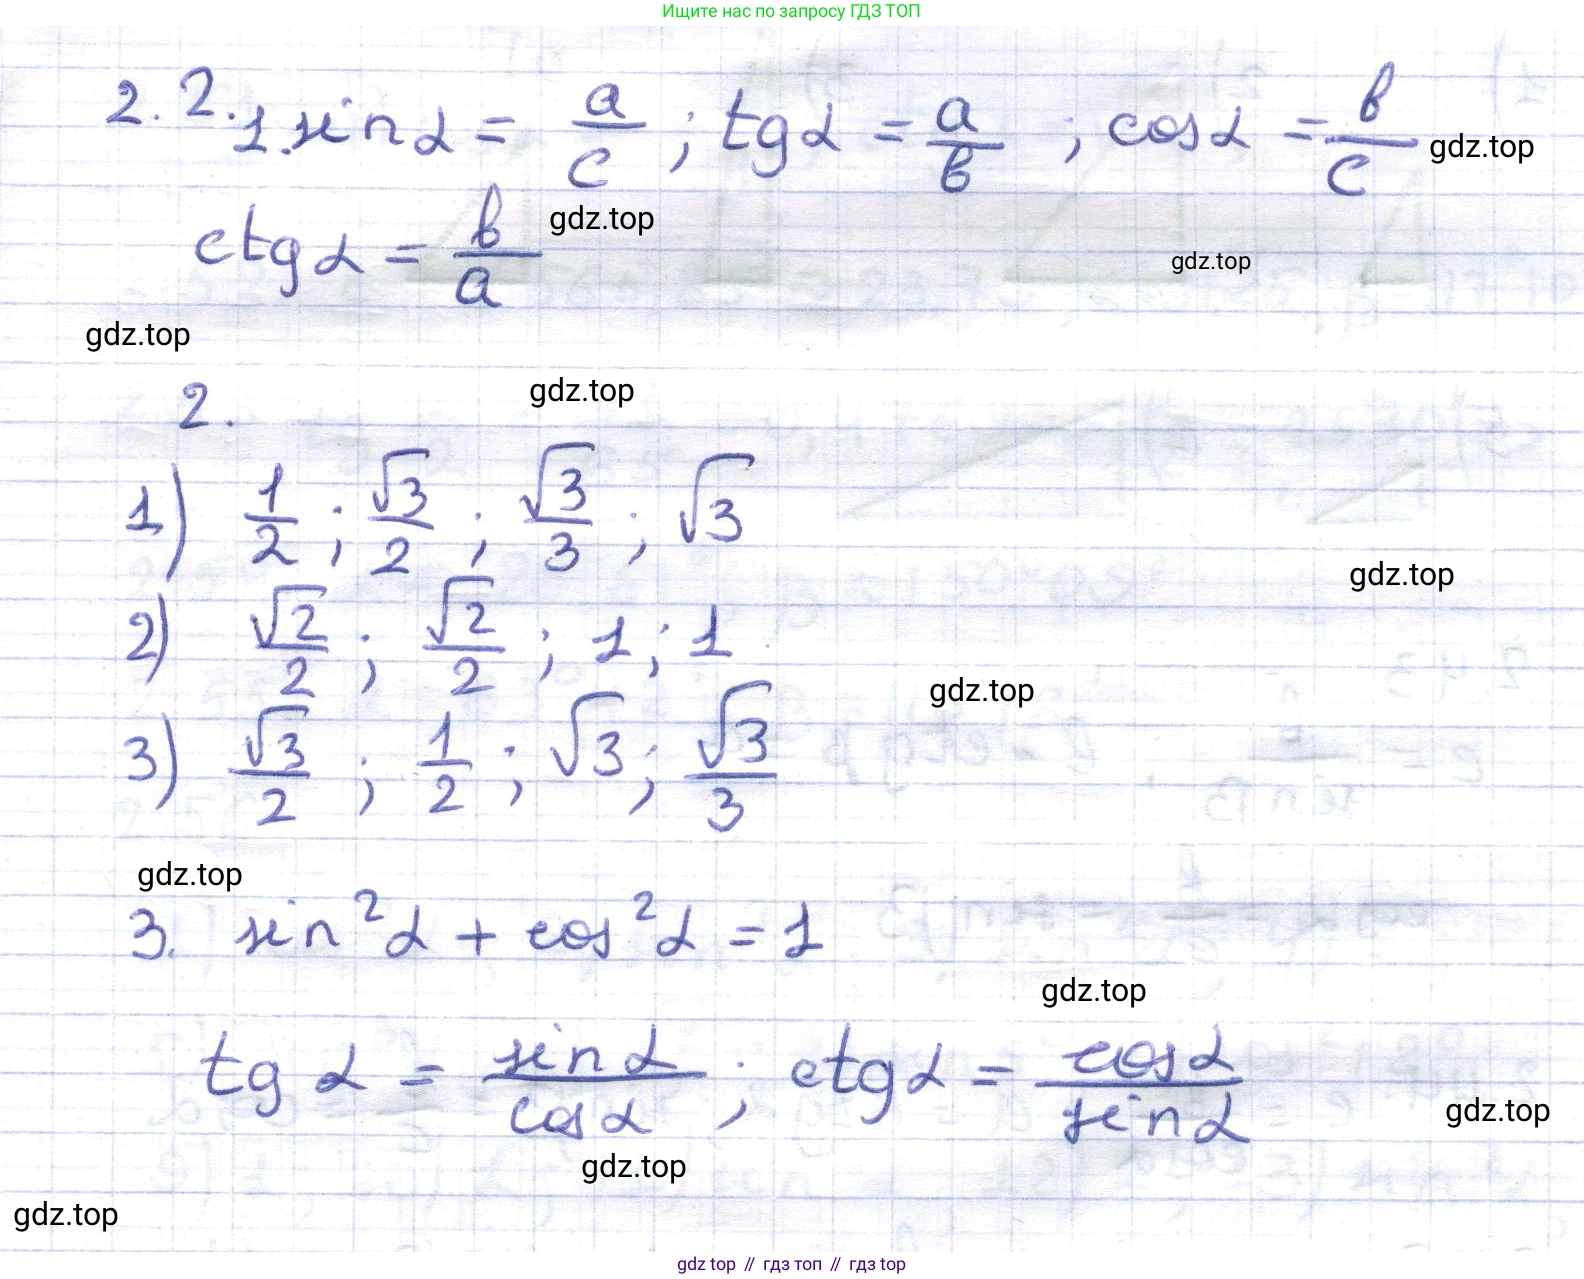 Ищите нас по запросу ГДЗ ТОП
2. 2. 1. sin α = a/c ; tg α = a/в ; cos α = в/c gdz.top
ctg α = в/a gdz.top
gdz.top
gdz.top
2. gdz.top
1) 1/2 ; √3/2 ; √3/3 ; √3
gdz.top
2) √2/2 ; √2/2 ; 1 ; 1
gdz.top
3) √3/2 ; 1/2 ; √3 ; √3/3
gdz.top
3. sin²α + cos²α = 1
gdz.top
tg α = sin α/cos α ; ctg α = cos α/sin α
gdz.top
gdz.top
gdz.top
gdz top // гдз топ // гдз top